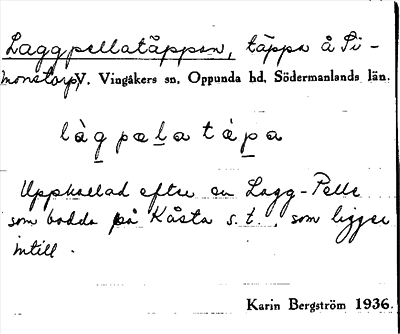 Laggpellatäppan, täppa å Si-
monstorp, V. Vingåkers sn, Oppunda hd, Södermanlands län.
làgpelatàpa
Uppkallad efter en Lagg-Pelle
som bodde på Kåsta s. t., som ligger
intill.
Karin Bergström 1936.